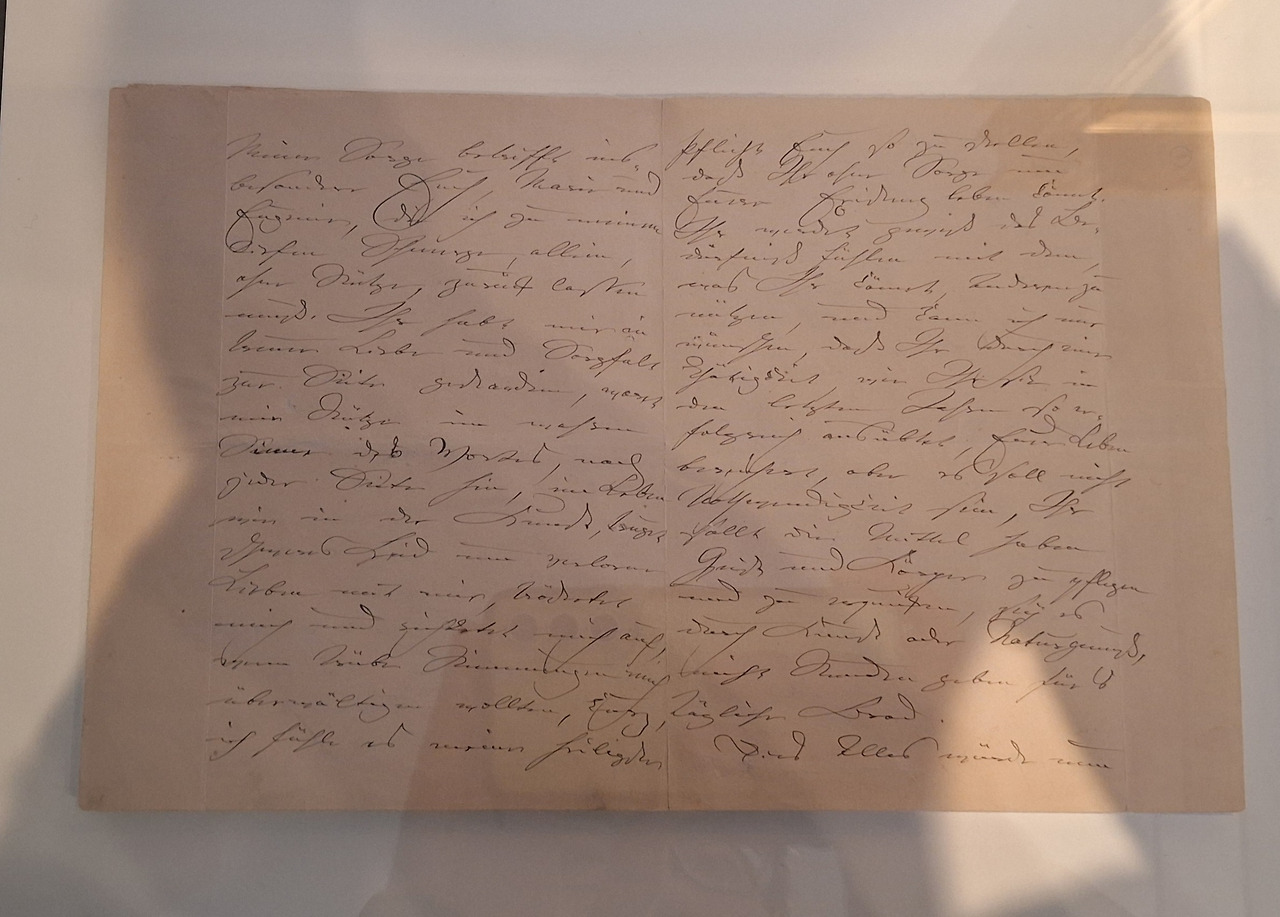 Meine Sorge betrifft ins-
besondere Euch, Marie und
Eugenie, die ich zu meinem
tiefen Schmerze, allein,
ohne Stütze, zurück lassen
muß. Ihr habt mir in
treuer Liebe und Sorgfalt
zur Seite gestanden, wart
mir Stütze im wahren
Sinne des Wortes, nach
jeder Seite hin, im Leben
wie in der Kunst, truget
schweres Leid um verlorene
Lieben mit mir, tröstetet
mich und richtetet mich auf,
wenn trübe Stimmungen mich
überwältigen wollten, kurz,
ich fühle es meine heiligste
Pflicht Euch so zu stellen,
daß Ihr ohne Sorge um
Eure Existenz leben könnt.
Ihr werdet gewiß das Be-
dürfniß fühlen mit dem,
was Ihr könnt, Anderen zu
nützen, und kann ich nur
wünschen, daß Ihr durch eine
Thätigkeit, wie Ihr sie in
den letzten Jahren so er-
folgreich ausübtet, Euer Leben
bereichert, aber es soll nicht
Nothwendigkeit sein, Ihr
sollt die Mittel haben
Geist und Körper zu pflegen
und zu erquicken, sey es
durch Kunst oder Naturgenuß,
nicht Stunden geben für's
tägliche Brod.
Dies Alles würde nun